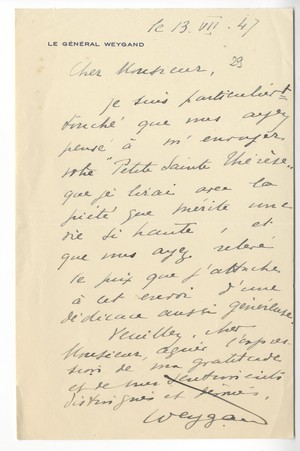 le 13. VII. 47
LE GÉNÉRAL WEYGAND
Cher Monsieur,
29
je suis particulièrt
touché que vous ayez
pensé à m'envoyer
votre "Petite Sainte Thérèse"
que je lirai avec la
piété que mérite une
vie si haute, et
que vous ayez relevé
le prix que j'attache
à cet envoi d'une
dédicace aussi généreuse.
Veuillez, cher
Monsieur, agréer l'expres
sion de ma gratitude
et de mes sentiments
distingués et
Weygand